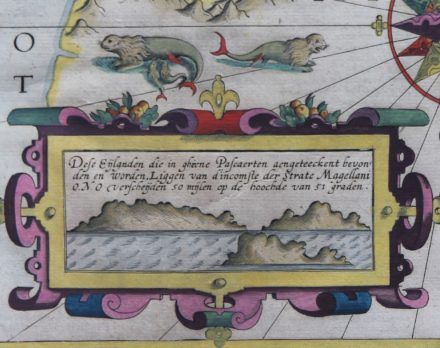 O
T
Dese Eylanden die in gheene Pascaerten aengeteeckent bevon-
den en worden, Liggen van d'incomste der Strate Magellani
O.N.O verscheyden 50 mijlen op de hoochde van 51 graden.